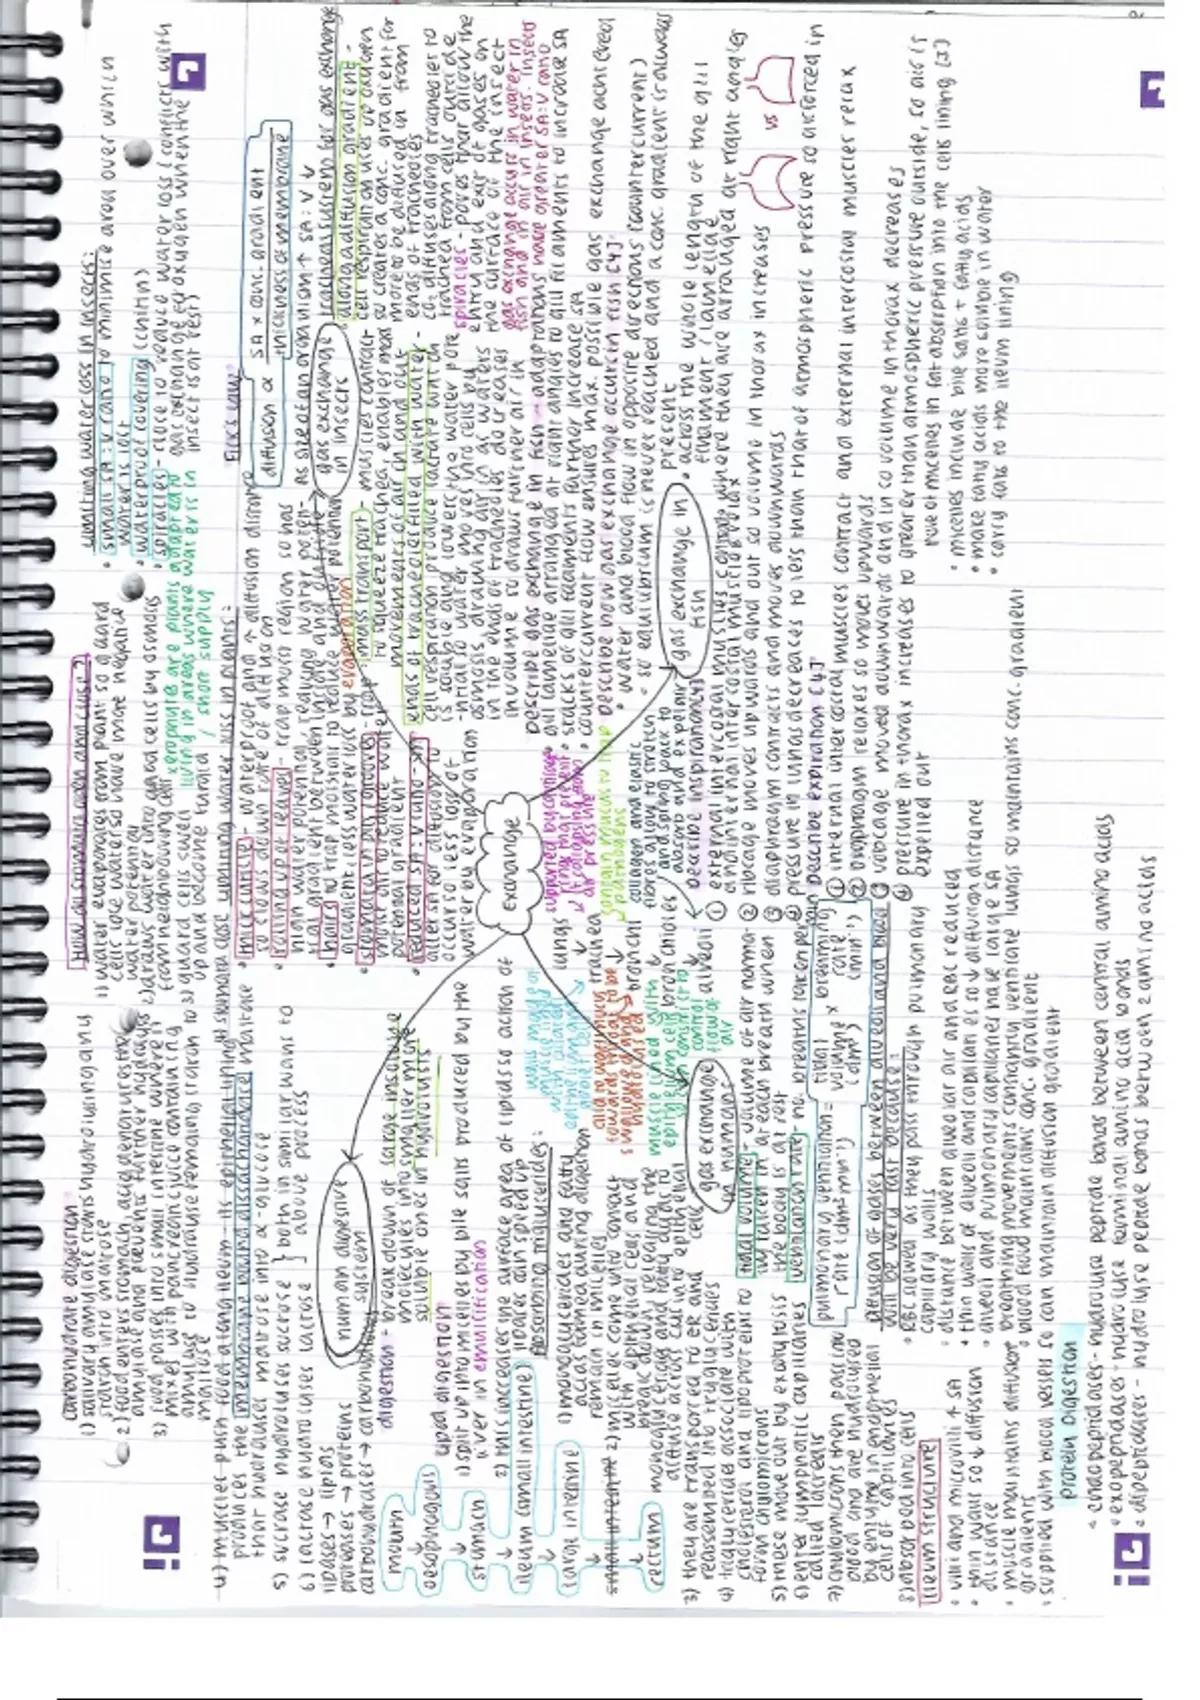 carbohydrate digestion
1) salivary amylase starts hydrolysing any
starch into maltose
2) food enters stomach, acid denatures the
amylase and prevents further hydrolysis
3) food passes into small intestine where it
mixes with pancreatic juice containing
amylase to hydrolyse remaining starch to
maltose
4) muscles push food along ileum - its epithelial lining
produces the membrane bound disaccharidase maltase
that hydrolyses maltose into α-glucose
5) sucrase hydrolyses sucrose } both in similar ways to
6) lactase hydrolyses lactose } above process
lipases → lipids
proteases → proteins
carbohydrases → carbohydrates
human digestive
system
digestion - breakdown of large insoluble
molecules into smaller more
soluble ones by hydrolysis
mouth
↓
oesophagus
↓
stomach
↓
ileum (small intestine)
↓
large intestine
↓
rectum
lipid digestion
1) split up into micelles by bile salts produced by the
liver in emulsification
2) this increases the surface area of lipids so action of
lipases can speed up
Absorbing triglycerides:
1) monoglycerides and fatty
acids formed during digestion
remain in micelles
2) micelles come into contact
with epithelial cells and
break down, releasing the
monoglycerides and fatty acids to
diffuse across csm into epithelial
cell
3) they are transported to ER and
reassembled into triglycerides
4) triglycerides associate with
cholesterol and lipoproteins to
form chylomicrons
5) these move out by exocytosis
6) enter lymphatic capillaries
called lacteals
7) chylomicrons then pass into
blood and are hydrolysed
by enzyme in endothelial
cells of capillaries
8) absorbed into cells
ileum structure
• villi and microvilli ↑ SA
• thin walls so ↓ diffusion
distance
• muscle maintains diffusion
gradients
• supplied with blood vessels so can maintain diffusion gradient
protein digestion
• endopeptidases - hydrolyse peptide bonds between central amino acids
• exopeptidases - hydrolyse terminal amino acid bonds
• dipeptidases - hydrolyse peptide bonds between 2 amino acids
How do stomata open and close?
1) water evaporates from plant so guard
cells lose water so have more negative
water potential
2) draws water into guard cells by osmosis
from neighbouring cells
3) guard cells swell
up and become turgid
xerophyte are plants adapted to
living in areas where water is in
short supply
limiting water loss in plants:
• thick cuticle - waterproof and ↑ diffusion distance
so slows down rate of diffusion
• rolling up of leaves - trap moist region so has
high water potential, reducing water poten-
tial gradient between inside and outside
• hairs to trap moisture to reduce water potential
gradient, less water lost by evaporation
• stomata in pits / grooves - trap
moist air to reduce water
potential gradient
• reduced SA:V ratio - ↑
distance for diffusion to
occur so less loss of
water by evaporation
limiting water loss in insects:
• small SA:V ratio to minimise area over which
water is lost
• waterproof covering (chitin)
• spiracles - close to reduce water loss (conflicts with
gas exchange eg oxygen when the
insect is at rest)
Fick's law
diffusion ∝ SA × conc. gradient
thickness of membrane
As size of an organism ↑ SA:V ↓
gas exchange
in insects
tracheal system for gas exchange
along diffusion gradient -
cell respiration uses up oxygen
so creates a conc. gradient for
more to be diffused in from
ends of tracheoles
CO₂ diffuses along tracheoles to
trachea from cells outside
spiracles - pores that allow the
entry and exit of gases on
the surface of the insect
gas exchange occurs in water in
fish and in air in insects. Insects
have greater SA:V ratio
mass transport - muscles contract
to squeeze trachea, enables mass
movements of air in and out
ends of tracheoles filled with water -
cell respiration produces lactate which
is soluble and lowers the water pote
-ntial so water moves into cells by
osmosis, drawing air in as waters
in the ends of tracheoles decreases
in volume so draws further air in
Exchange
describe gas exchange in fish - adaptations
• gill lamellae arranged at right angles to gill filaments to increase SA
• stacks of gill filaments further increase SA
• countercurrent flow ensures max. possible gas exchange achieved
describe how gas exchange occurs in fish [4]
• water and blood flow in opposite directions (countercurrent)
• so equilibrium is never reached and a conc. gradient is always
present
• across the whole length of the gill
filament / lamellae
gas exchange in
fish
lungs
↓
trachea
↓
bronchi
↓
bronchioles
↓
alveoli
supported by cartilage
contain mucus to trap
pathogens
collagen and elastic
fibres allow to stretch
and spring back to
absorb and expel air
gas exchange
in humans
describe inspiration [4]
① external intercostal muscles contract
and internal intercostal muscles relax
② ribcage moves upwards and out so volume in thorax increases
③ diaphragm contracts and moves downwards
④ pressure in lungs decreases to less than that of atmospheric pressure so air forced in
describe expiration [4]
① internal intercostal muscles contract and external intercostal muscles relax
② diaphragm relaxes so moves upwards
③ ribcage moved downwards and in so volume in thorax decreases
④ pressure in thorax increases to greater than atmospheric pressure outside, so air is
expelled out
vs
tidal volume - volume of air norma-
lly taken in at each breath when
the body is at rest
ventilation rate - no. breaths taken per
pulmonary ventilation = tidal volume × breathing rate
rate (dm³ min⁻¹) (dm³) (min⁻¹)
diffusion of gases between alveoli and blood
will be very fast because:
• RBC slowed as they pass through pulmonary
capillary walls
• distance between alveolar air and RBC reduced
• thin walls of alveoli and capillaries so ↓ diffusion distance
• alveoli and pulmonary capillaries have large SA
• breathing movements constantly ventilate lungs so maintains conc. gradient
• blood flow maintains conc. gradient
role of micelles in fat absorption into the cells lining [3]
• micelles include bile salts + fatty acids
• make fatty acids more soluble in water
• carry fats to the ileum lining